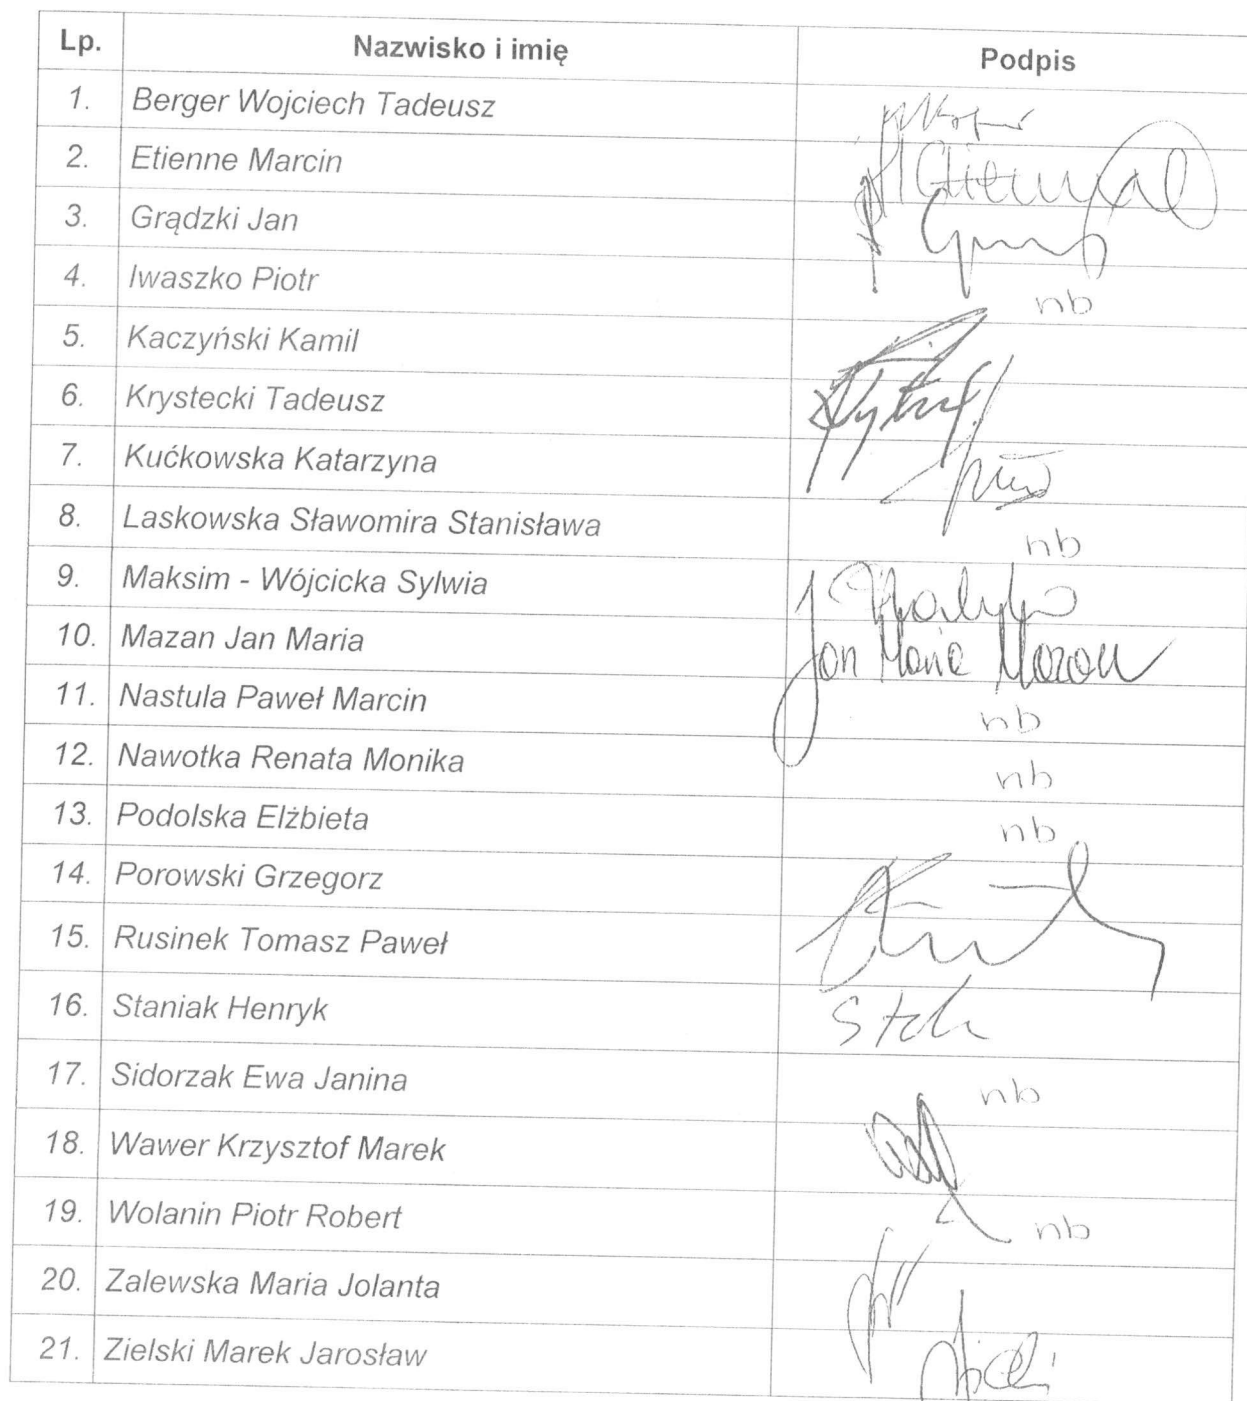 Lp. Nazwisko i imię Podpis
1. Berger Wojciech Tadeusz
2. Etienne Marcin
3. Grądzki Jan
4. Iwaszko Piotr nb
5. Kaczyński Kamil
6. Krystecki Tadeusz
7. Kućkowska Katarzyna
8. Laskowska Sławomira Stanisława nb
9. Maksim - Wójcicka Sylwia
10. Mazan Jan Maria Jan Maria Mazan
11. Nastula Paweł Marcin nb
12. Nawotka Renata Monika nb
13. Podolska Elżbieta nb
14. Porowski Grzegorz
15. Rusinek Tomasz Paweł
16. Staniak Henryk
17. Sidorzak Ewa Janina nb
18. Wawer Krzysztof Marek
19. Wolanin Piotr Robert nb
20. Zalewska Maria Jolanta
21. Zielski Marek Jarosław